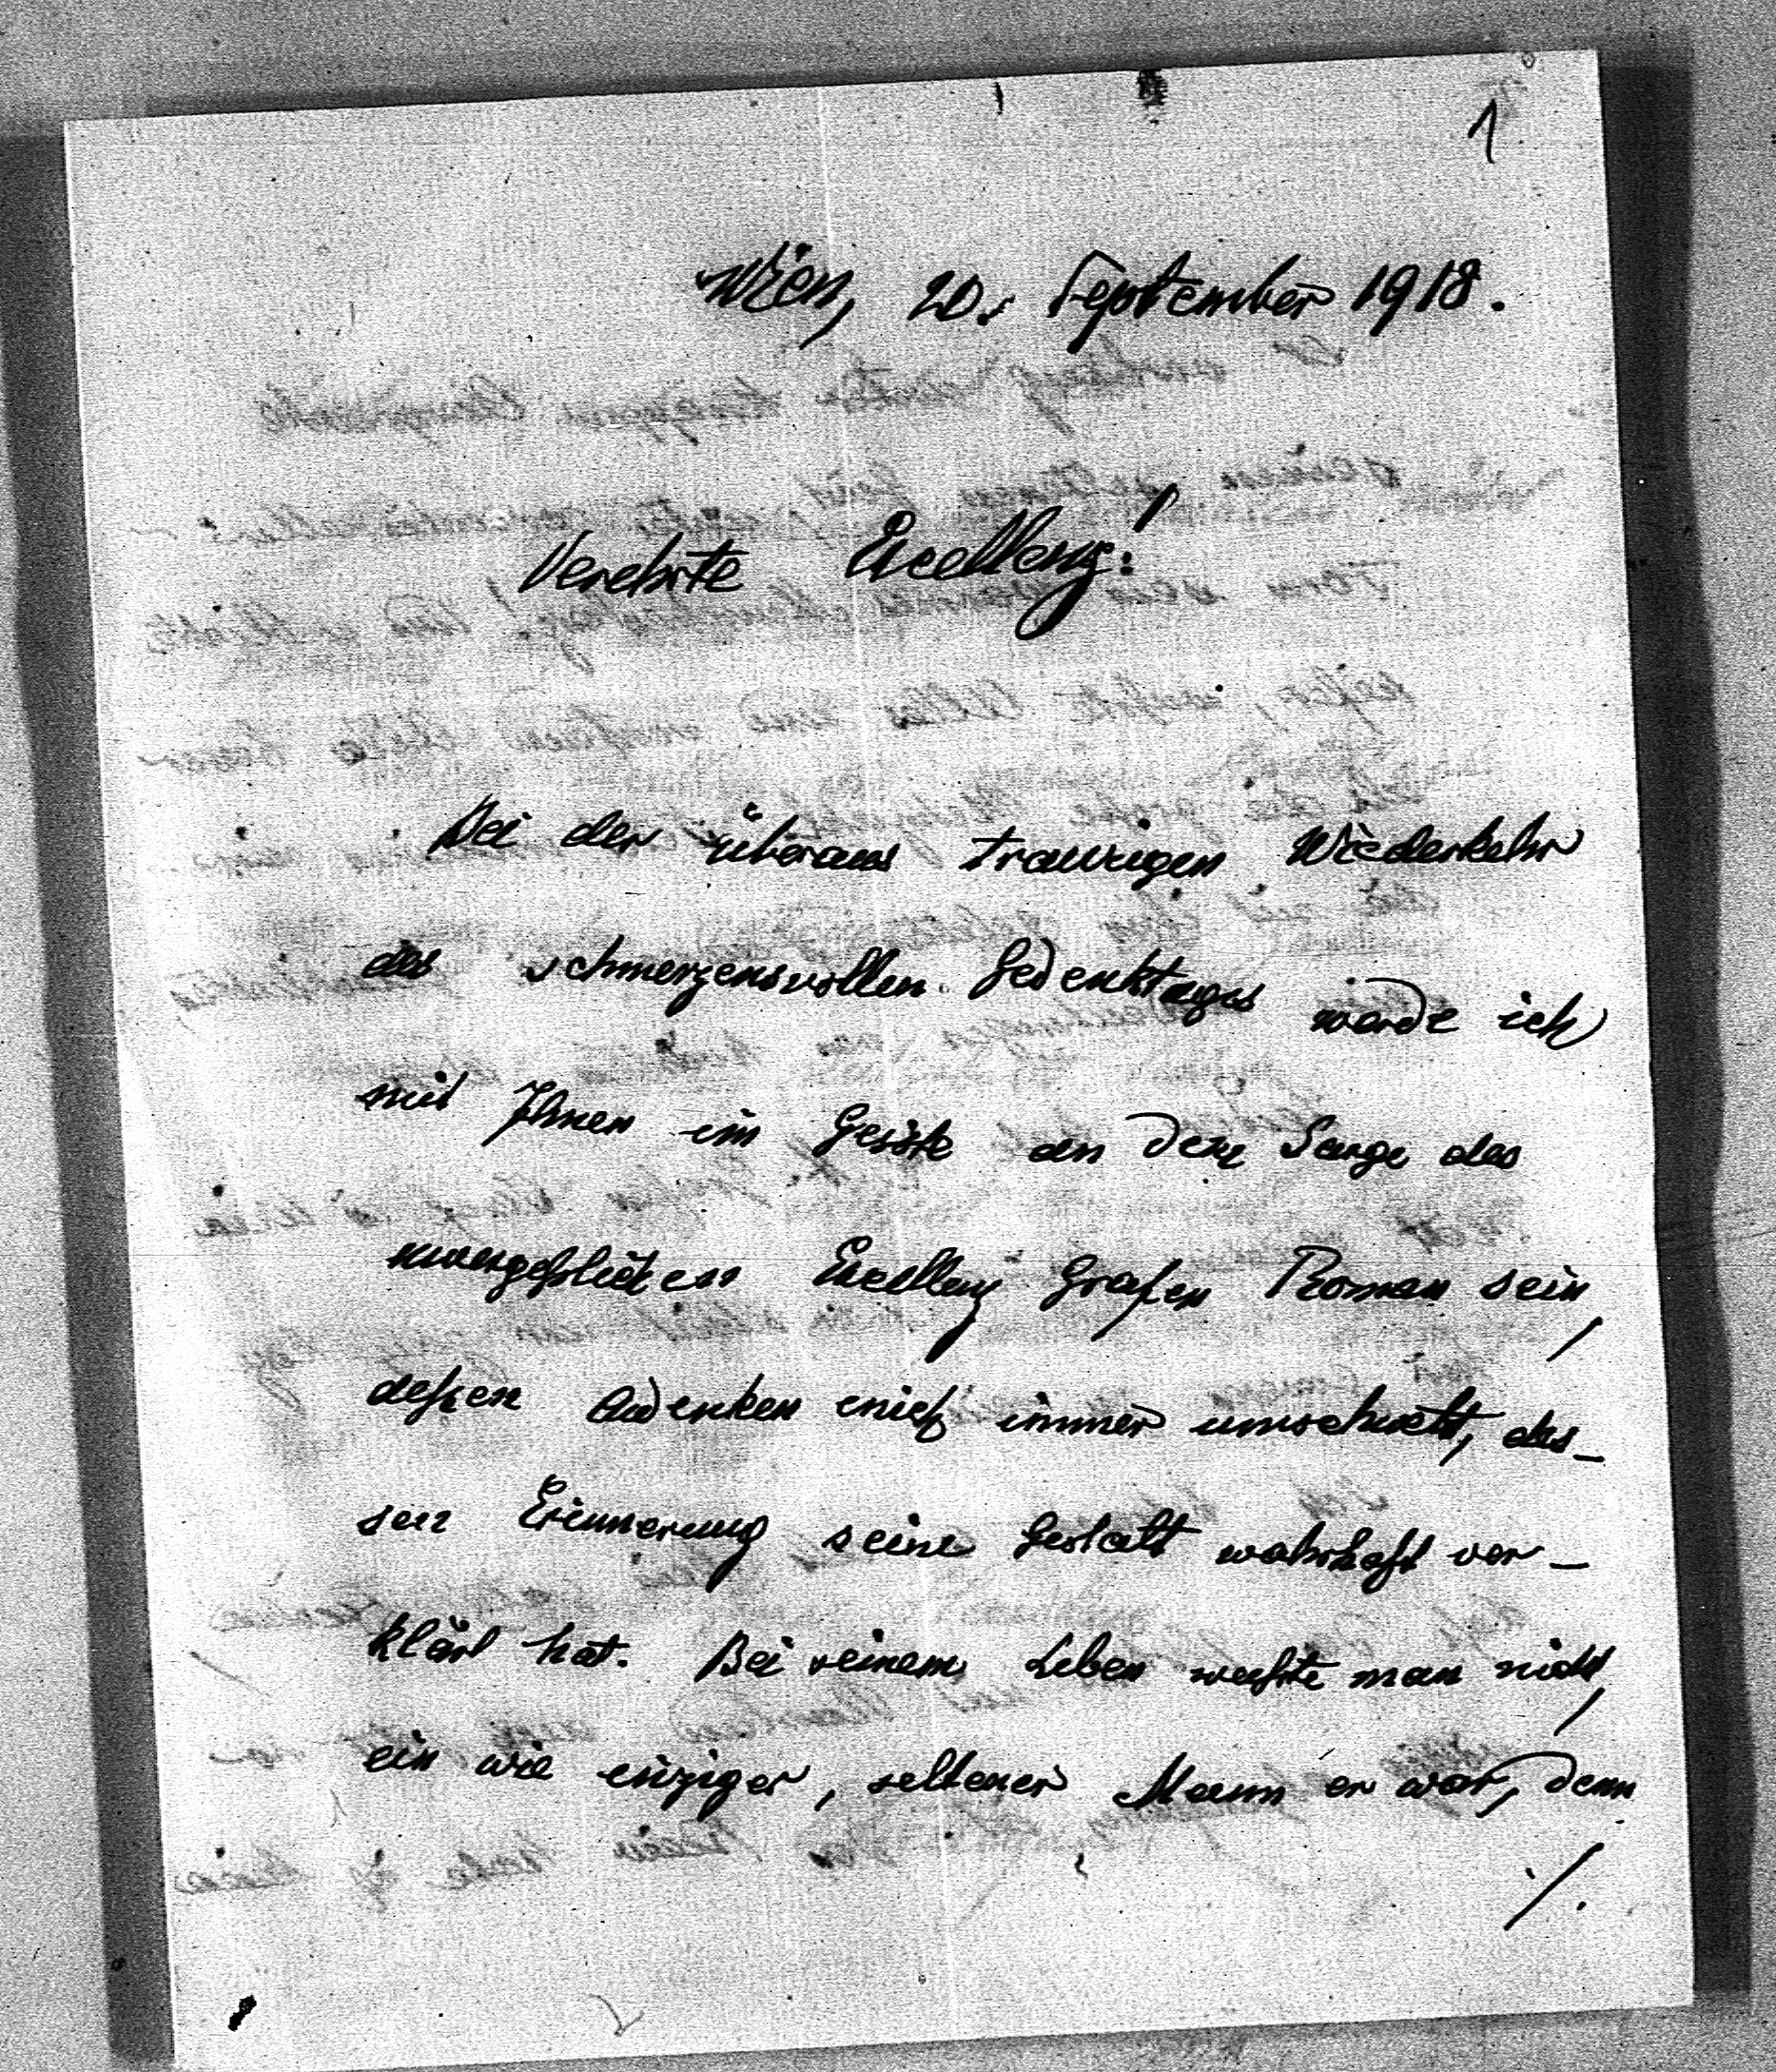 1
Wien, 20. September 1918.
Verehrte Excellenz!
Bei der überaus traurigen Wiederkehr
des schmerzensvollen Gedenktages werde ich
mit Ihnen im Geiste an dem Sarge des
unvergeßlichen Excellenz Grafen Roman sein,
deßen Andenken mich immer umschwebt, des-
sen Erinnerung seine Gestalt wahrhaft ver-
klärt hat. Bei seinem Leben wußte man nicht,
ein wie einziger, seltener Mann er war, denn
./.